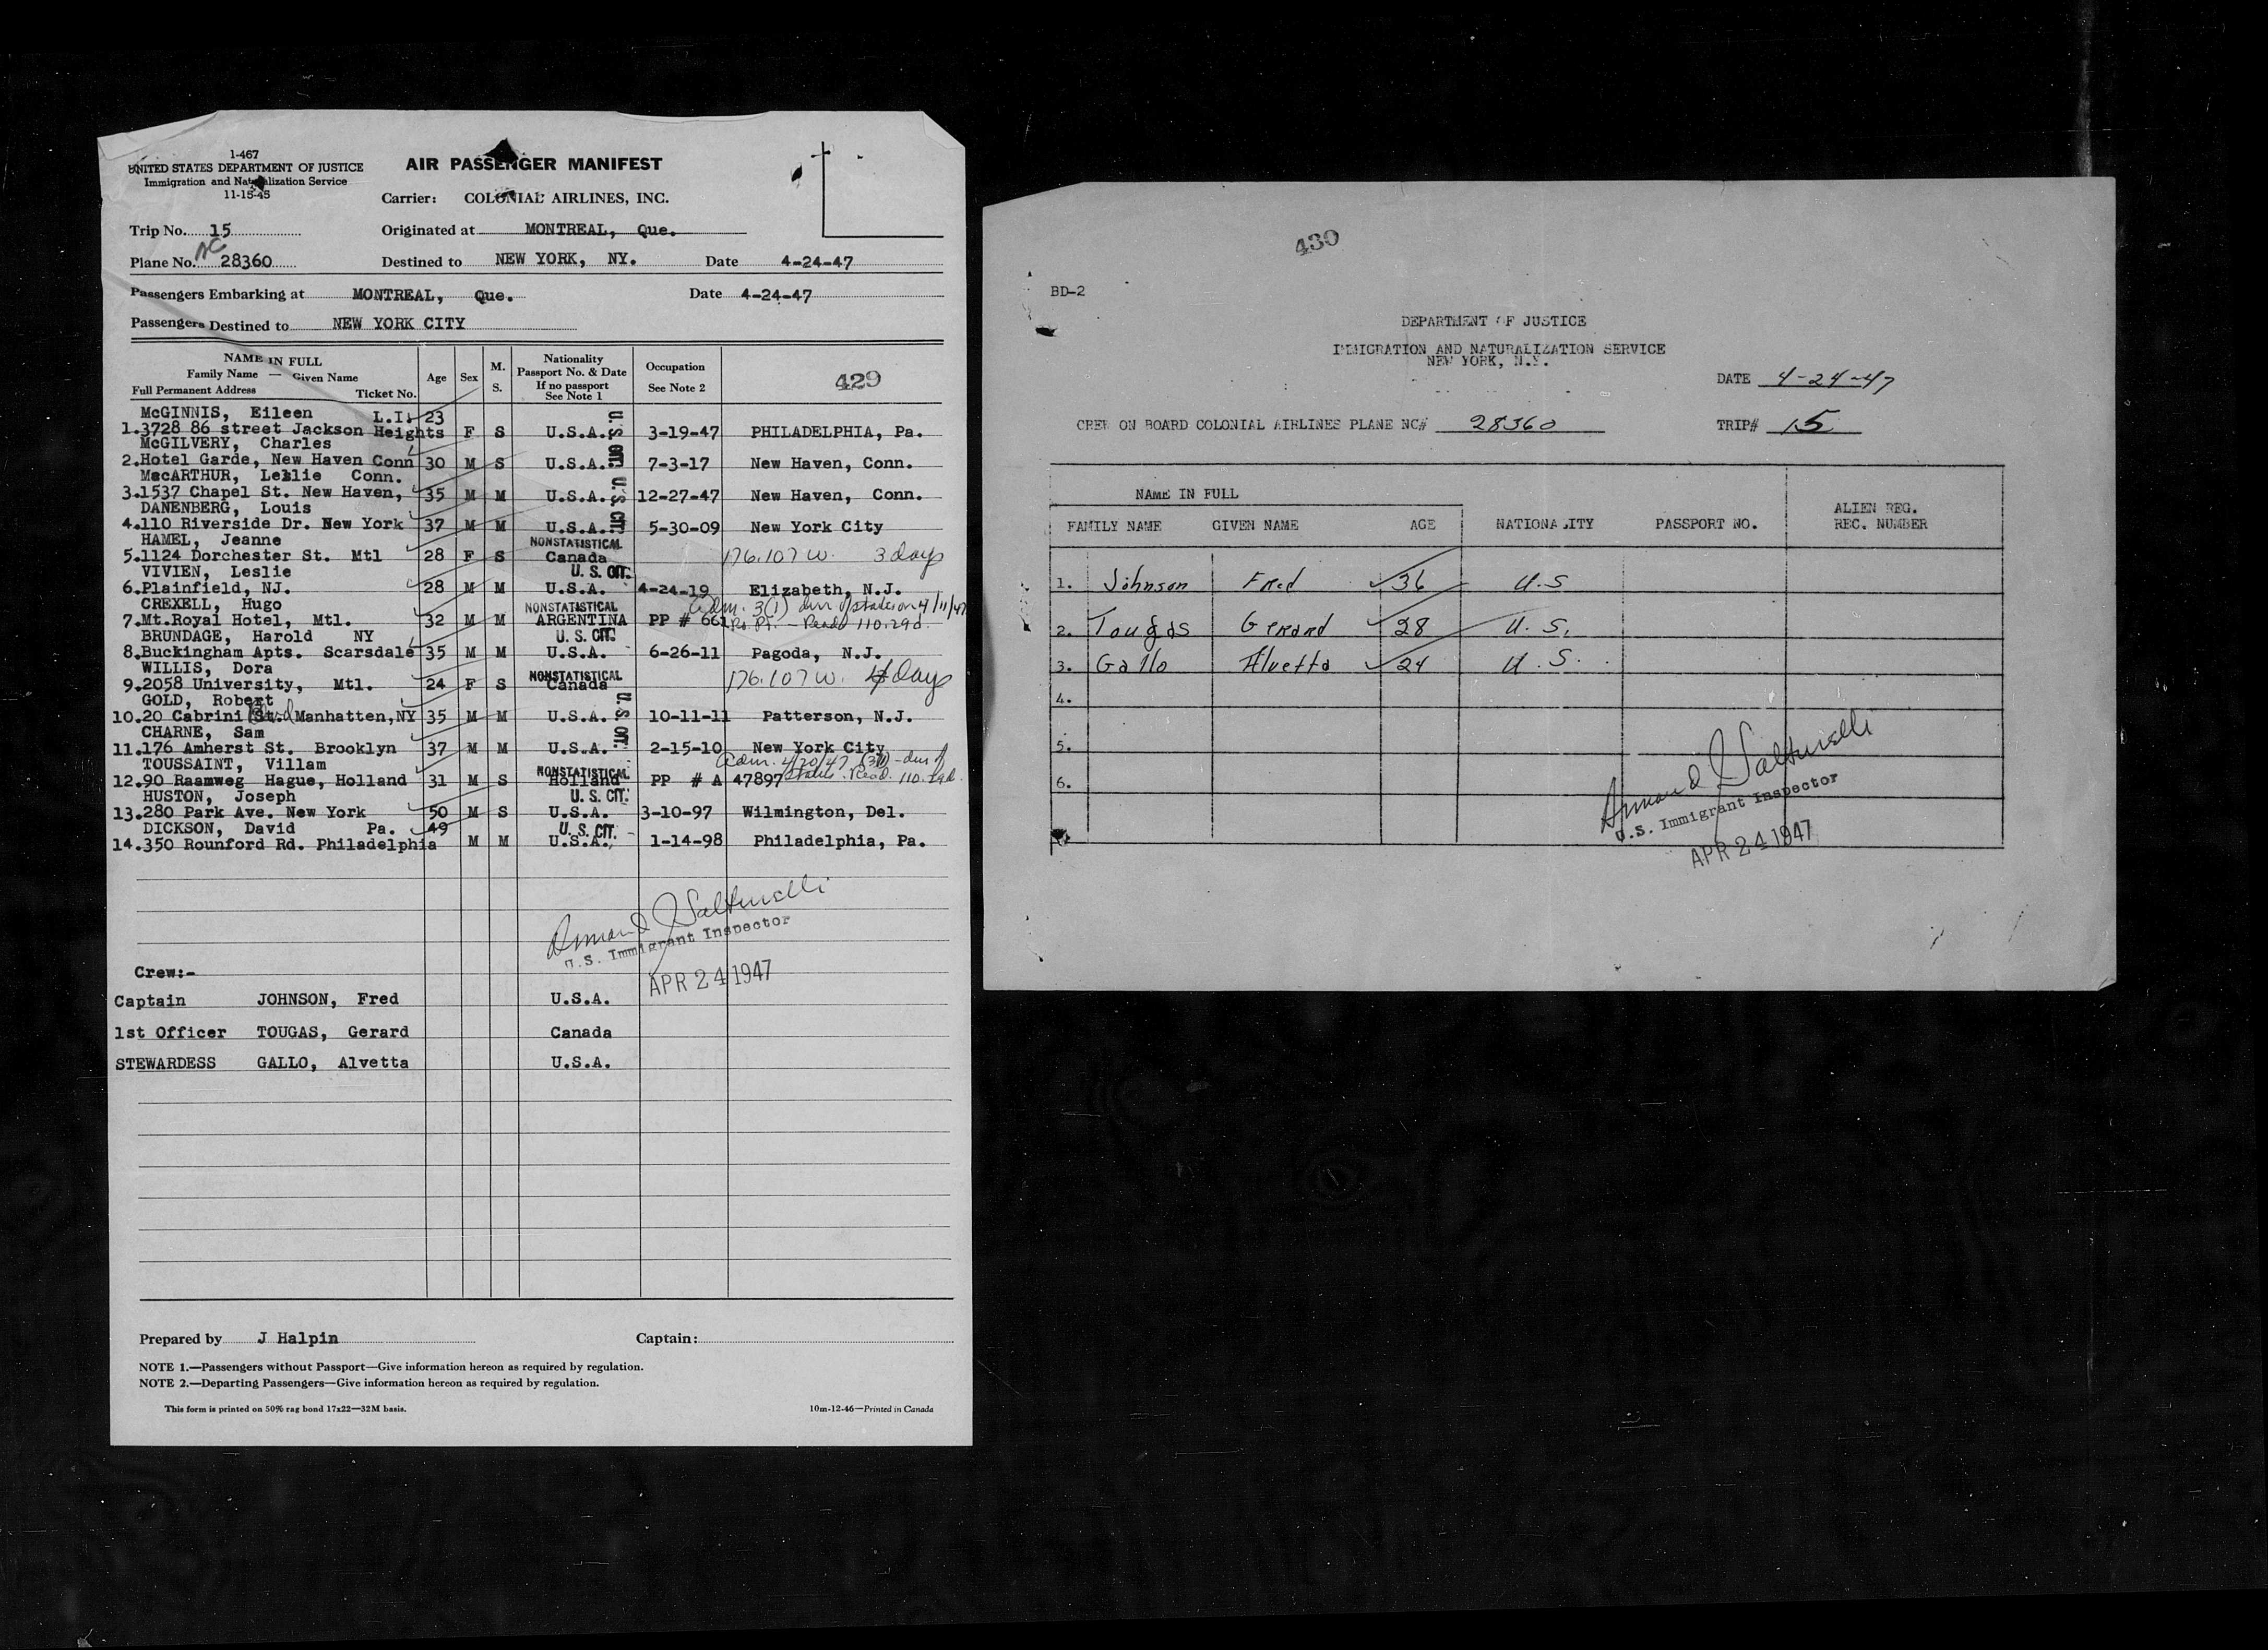 1-467
UNITED STATES DEPARTMENT OF JUSTICE
Immigration and Naturalization Service
11-15-45
AIR PASSENGER MANIFEST
Carrier: COLONIAL AIRLINES, INC.
Trip No. 15 Originated at MONTREAL, Que.
NC
Plane No. 28360 Destined to NEW YORK, NY. Date 4-24-47
Passengers Embarking at MONTREAL, Que. Date 4-24-47
Passengers Destined to NEW YORK CITY
NAME IN FULL
Family Name — Given Name
Full Permanent Address Ticket No.
Age Sex M. S.
Nationality
Passport No. & Date
If no passport
See Note 1
Occupation
See Note 2
429
McGINNIS, Eileen L.I. 23
1.3728 86 street Jackson Heights F S U.S.A. U. S. CIT. 3-19-47 PHILADELPHIA, Pa.
McGILVERY, Charles
2.Hotel Garde, New Haven Conn 30 M S U.S.A. 7-3-17 New Haven, Conn.
MacARTHUR, Leslie Conn.
3.1537 Chapel St. New Haven, 35 M M U.S.A. U. S. CIT. 12-27-47 New Haven, Conn.
DANENBERG, Louis
4.110 Riverside Dr. New York 37 M M U.S.A. 5-30-09 New York City
HAMEL, Jeanne NONSTATISTICAL
5.1124 Dorchester St. Mtl 28 F S Canada 176.107 W. 3 days
VIVIEN, Leslie U. S. CIT.
6.Plainfield, NJ. 28 M M U.S.A. 4-24-19 Elizabeth, N.J.
CREXELL, Hugo NONSTATISTICAL Adm. 3(1) dur of status on 4/11/47
7.Mt.Royal Hotel, Mtl. 32 M M ARGENTINA PP # 661 Readm 110.29d.
BRUNDAGE, Harold NY U. S. CIT.
8.Buckingham Apts. Scarsdale 35 M M U.S.A. 6-26-11 Pagoda, N.J.
WILLIS, Dora NONSTATISTICAL
9.2058 University, Mtl. 24 F S Canada 176.107 W. 4 days
GOLD, Robert Blvd
10.20 Cabrini St. Manhatten,NY 35 M M U.S.A. U. S. CIT. 10-11-11 Patterson, N.J.
CHARNE, Sam
11.176 Amherst St. Brooklyn 37 M M U.S.A. 2-15-10 New York City
TOUSSAINT, Villam NONSTATISTICAL Adm. 4/20/47 dur of
12.90 Raamweg Hague, Holland 31 M S Holland PP # A 47897 status. Read. 110.29d.
HUSTON, Joseph U. S. CIT.
13.280 Park Ave. New York 50 M S U.S.A. 3-10-97 Wilmington, Del.
DICKSON, David Pa. 49 U. S. CIT.
14.350 Rounford Rd. Philadelphia M M U.S.A. 1-14-98 Philadelphia, Pa.
U.S. Immigrant Inspector
APR 24 1947
Crew:-
Captain JOHNSON, Fred U.S.A.
1st Officer TOUGAS, Gerard Canada
STEWARDESS GALLO, Alvetta U.S.A.
Prepared by J Halpin Captain:
NOTE 1.—Passengers without Passport—Give information hereon as required by regulation.
NOTE 2.—Departing Passengers—Give information hereon as required by regulation.
This form is printed on 50% rag bond 17x22—32M basis. 10m-12-46—Printed in Canada
430
BD-2
DEPARTMENT OF JUSTICE
IMMIGRATION AND NATURALIZATION SERVICE
NEW YORK, N.Y.
DATE 4-24-47
CREW ON BOARD COLONIAL AIRLINES PLANE NC# 28360 TRIP# 15
NAME IN FULL
FAMILY NAME GIVEN NAME AGE NATIONALITY PASSPORT NO. ALIEN REG. REC. NUMBER
1. Johnson Fred 36 U.S
2. Tougas Gerard 28 U.S.
3. Gallo Alvetta 24 U.S.
4.
5.
6.
U.S. Immigrant Inspector
APR 24 1947